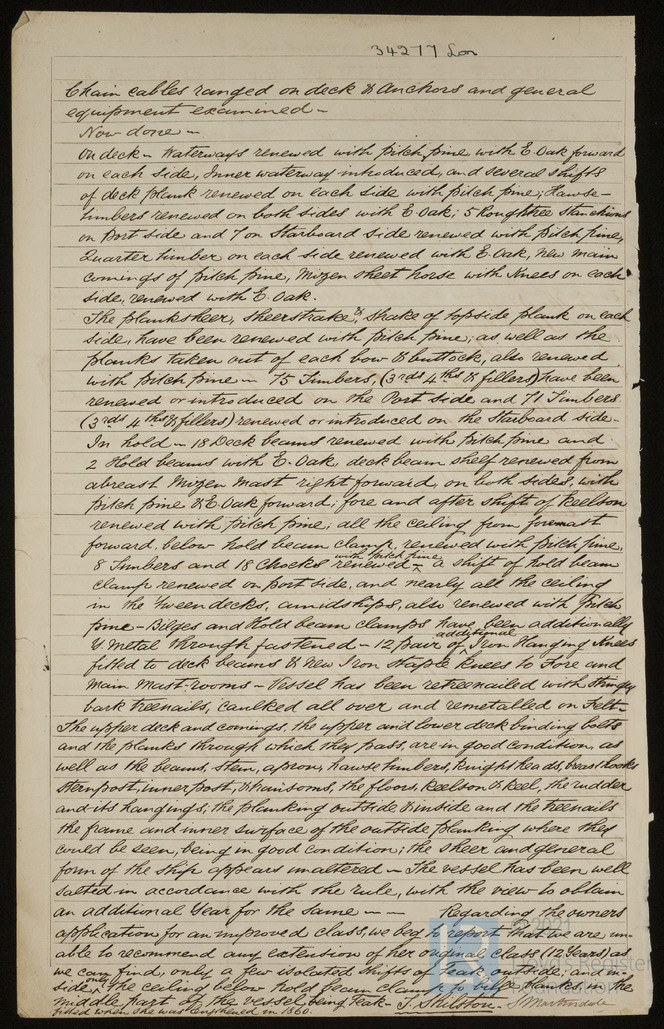 34277 Lon
Chain cables ranged on deck & Anchors and general
equipment examined –
Now done –
On deck – Waterways renewed with pitch pine, with E. Oak forward
on each side, Inner waterway introduced, and several shifts
of deck plank renewed on each side with pitch pine; Hawse-
timbers renewed on both sides with E Oak; 5 Roughtree stanchions
on Port side and 7 on Starboard side renewed with pitch pine,
Quarter timber on each side renewed with E. Oak, New Main
comings of pitch pine, Mizen sheet horse with Knees on each
side, renewed with E. Oak.
The planksheer, sheerstrake, & strake of topside plank on each
side, have been renewed with pitch pine; as well as the
planks taken out of each bow & buttock, also renewed
with pitch pine – 75 Timbers, (3rds 4ths & fillers) have been
renewed or introduced on the Port side and 71 Timbers
(3rds 4ths & fillers) renewed or introduced on the Starboard side –
In hold – 18 Deck beams renewed with pitch pine and
2 Hold beams with E. Oak, deck beam shelf renewed from
abreast Mizen mast right forward, on both sides, with
pitch pine & E. Oak forward; fore and after shift of Keelson
renewed with pitch pine; all the ceiling from foremast
forward, below hold beam clamp, renewed with pitch pine,
8 Timbers and 18 Chocks renewed with pitch pine – a shift of hold beam
clamp renewed on port side, and nearly all the ceiling
in the 'tween decks, amidships, also renewed with Pitch
pine – Bilges and Hold beam clamps have been additionally
Y Metal through fastened – 12 pair of additional Iron Hanging Knees
fitted to deck beams & New Iron Staple Knees to Fore and
Main Mast-rooms – Vessel has been retreenailed with Stringy
bark treenails, caulked all over and remetalled on Felt –
The upper deck and comings, the upper and lower deck binding bolts
and the planks through which they pass, are in good condition, as
well as the beams, stem, apron, hawse timbers, knightheads, breasthooks
sternpost, inner post, & transoms, the floors, keelson & keel, the rudder
and its hangings, the planking outside & inside and the treenails
the frame and inner surface of the outside planking where they
could be seen, being in good condition; the sheer and general
form of the ship appears unaltered – The vessel has been well
salted in accordance with the rule, with the view to obtain
an additional Year for the same – – Regarding the owners
application for an improved class, we beg to report that we are un-
able to recommend any extension of her original class (12 Years) as
we can find, only a few isolated shifts of Teak, outside, and in-
side, only the ceiling below hold beam clamp to bilge planks in the
middle part of the vessel being Teak – T. Skilston. S Martindale
fitted when she was lengthened in 1860.
© 2021
Lloyd's Register
Foundation